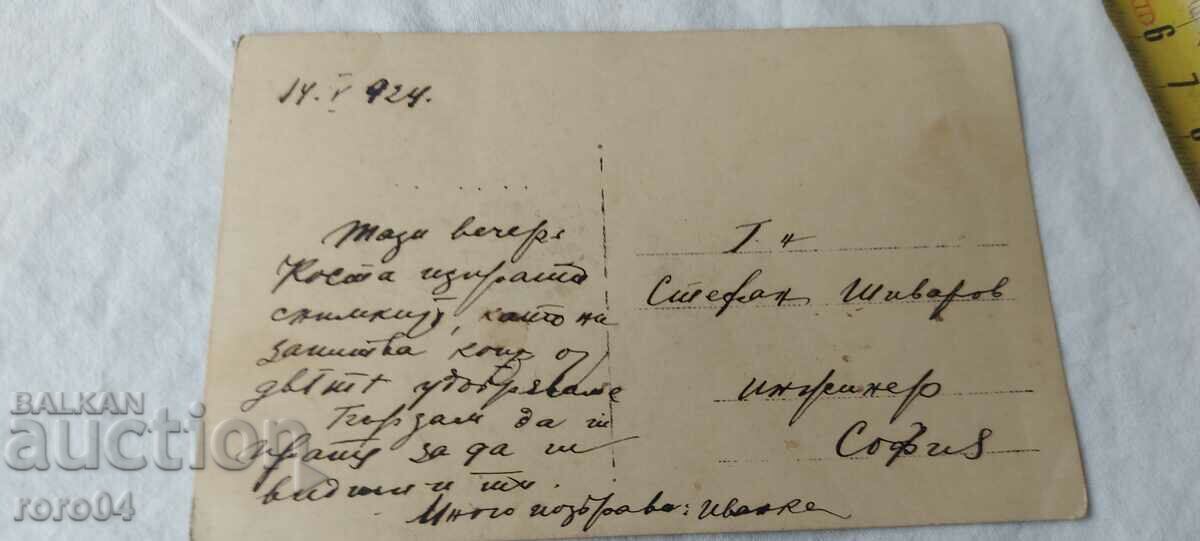 14. V 924.
Тази вечерь
Коста изпрати
снимкитѣ, като ни
запитва коя от
двѣтѣ удобряваме
Бързам да ти
пратя за да ги
видиш и ти.
Много поздрави: Иванка
Г. н
Стефан Шиваров
инжинер
София
BALKAN
auction
roro04
6
7
8